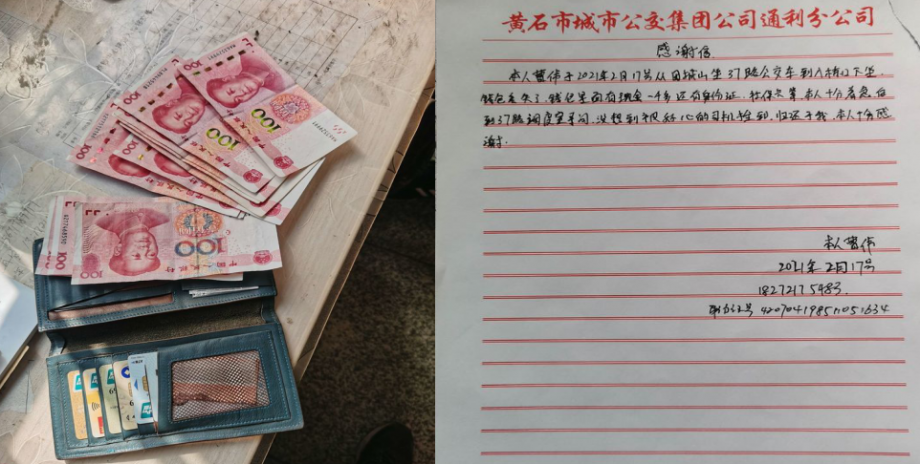 100
100
100
黄石市城市公交集团公司通利分公司
感谢信
本人曹伟于2021年2月17号从团城山坐37路公交车到八桥口下坐,
钱包丢失了,钱包里面有现金一千多还有身份证,社保卡等,本人十分着急,后
到37路调度室寻问,没想到被好心的司机捡到,归还于我,本人十分感
谢.
本人曹伟
2021年2月17号